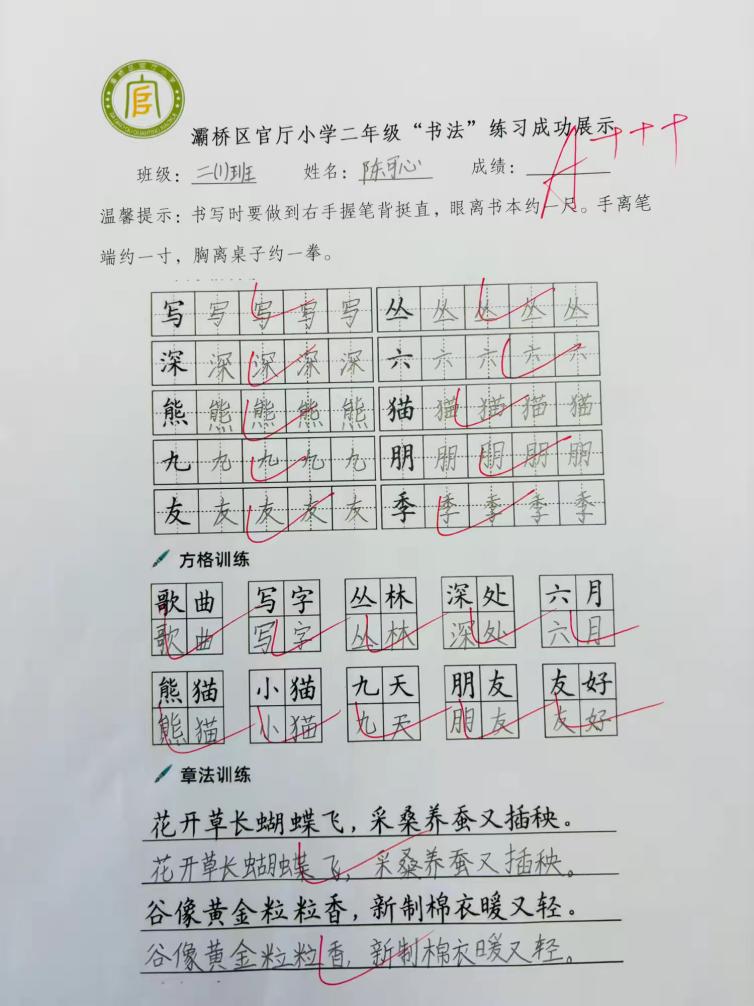 官
灞桥区官厅小学二年级“书法”练习成功展示
班级：二(1)班 姓名：陈可心 成绩：A+++
温馨提示：书写时要做到右手握笔背挺直，眼离书本约一尺。手离笔
端约一寸，胸离桌子约一拳。
写写写写写 丛丛丛丛丛
深深深深深 六六六六六
熊熊熊熊熊 猫猫猫猫猫
九九九九九 朋朋朋朋朋
友友友友友 季季季季季
方格训练
歌曲 写字 丛林 深处 六月
歌曲 写字 丛林 深处 六月
熊猫 小猫 九天 朋友 友好
熊猫 小猫 九天 朋友 友好
章法训练
花开草长蝴蝶飞，采桑养蚕又插秧。
花开草长蝴蝶飞，采桑养蚕又插秧。
谷像黄金粒粒香，新制棉衣暖又轻。
谷像黄金粒粒香，新制棉衣暖又轻。